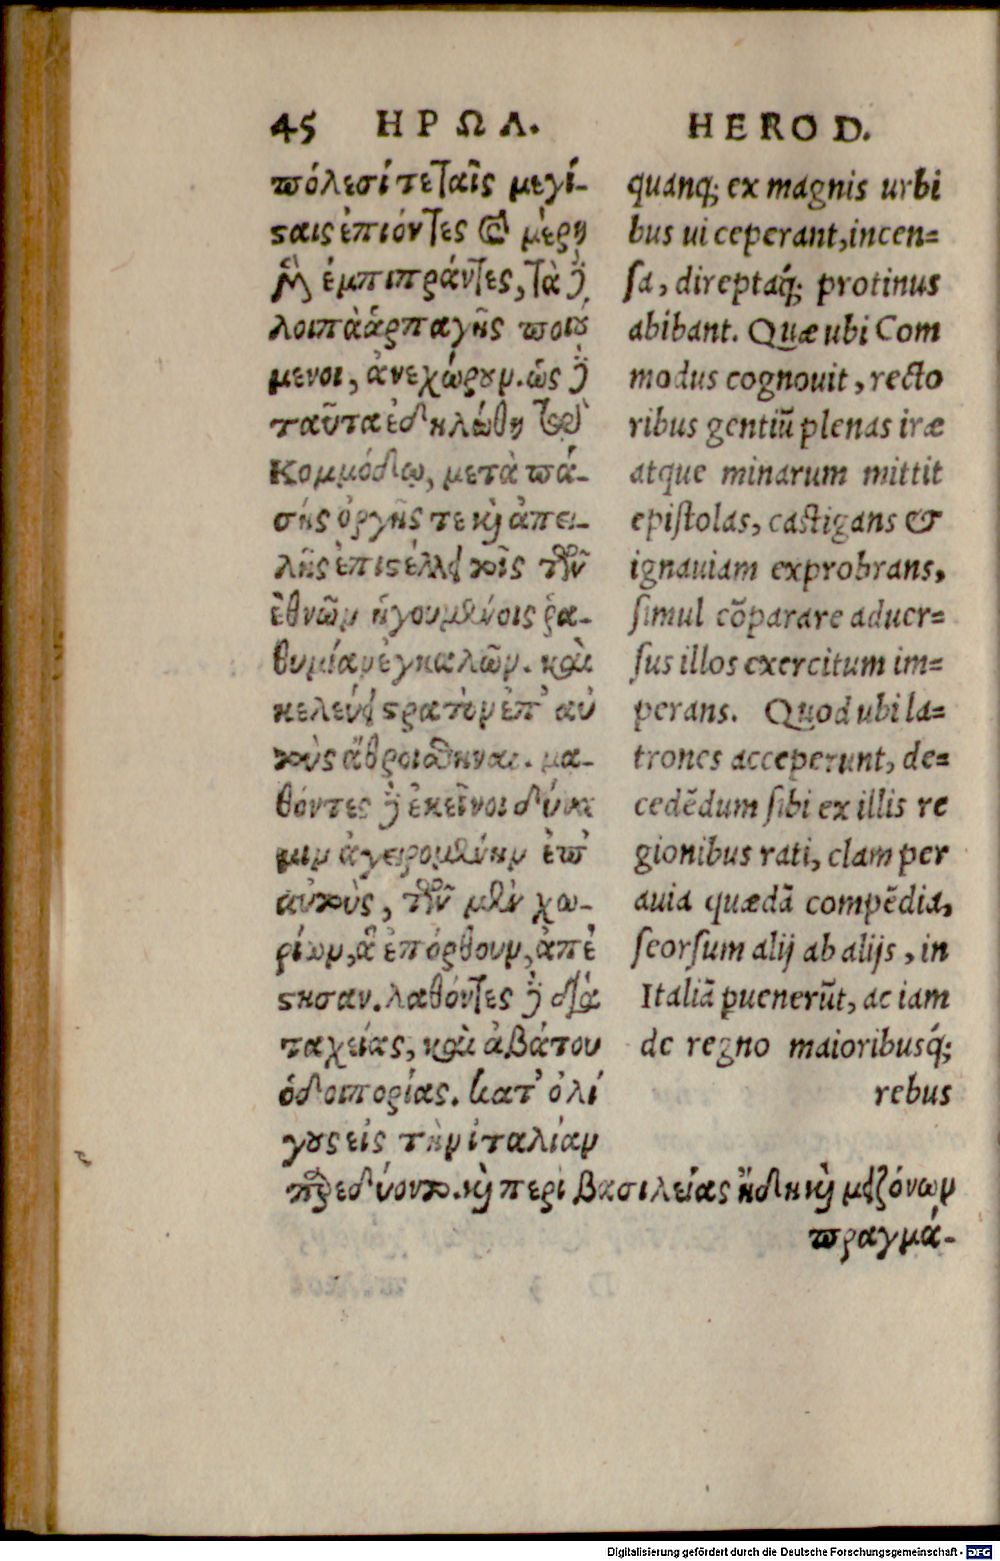 45 ΗΡΩΔ. HEROD.
πόλεσί τε ταῖς μεγί-
σταις ἐπιόντες τὰ μέρη
μὲν ἐμπιπράντες, τὰ δὲ
λοιπὰ ἁρπαγῆς ποιού
μενοι, ἀνεχώρουν. ὡς δὲ
ταῦτα ἐδηλώθη τῷ
Κομμόδῳ, μετὰ πά-
σης ὀργῆς τε καὶ ἀπει-
λῆς ἐπιστέλλει τοῖς τῶν
ἐθνῶν ἡγουμένοις ῥα-
θυμίαν ἐγκαλῶν. καὶ
κελεύει στρατὸν ἐπ' αὐ
τοὺς ἀθροισθῆναι. μα-
θόντες δὲ ἐκεῖνοι δύνα
μιν ἀγειρομένην ἐπ'
αὐτοὺς, τῶν μὲν χω-
ρίων, ἃ ἐπόρθουν, ἀπέ
στησαν. λαθόντες δὲ διὰ
ταχείας, καὶ ἀβάτου
ὁδοιπορίας. κατ' ὀλί
γους εἰς τὴν ἰταλίαν
παρεδύοντο. καὶ περὶ βασιλείας ἤδη καὶ μειζόνων
πραγμά-
quanq; ex magnis urbi
bus ui ceperant, incen=
sa, direptaq́; protinus
abibant. Quæ ubi Com
modus cognouit, recto
ribus gentiũ plenas iræ
atque minarum mittit
epistolas, castigans &
ignauiam exprobrans,
simul cõparare aduer=
sus illos exercitum im=
perans. Quod ubi la=
trones acceperunt, de=
cedẽdum sibi ex illis re
gionibus rati, clam per
auia quædã compẽdia,
seorsum alij ab alijs, in
Italiã puenerũt, ac iam
de regno maioribusq́;
rebus
Digitalisierung gefördert durch die Deutsche Forschungsgemeinschaft - DFG